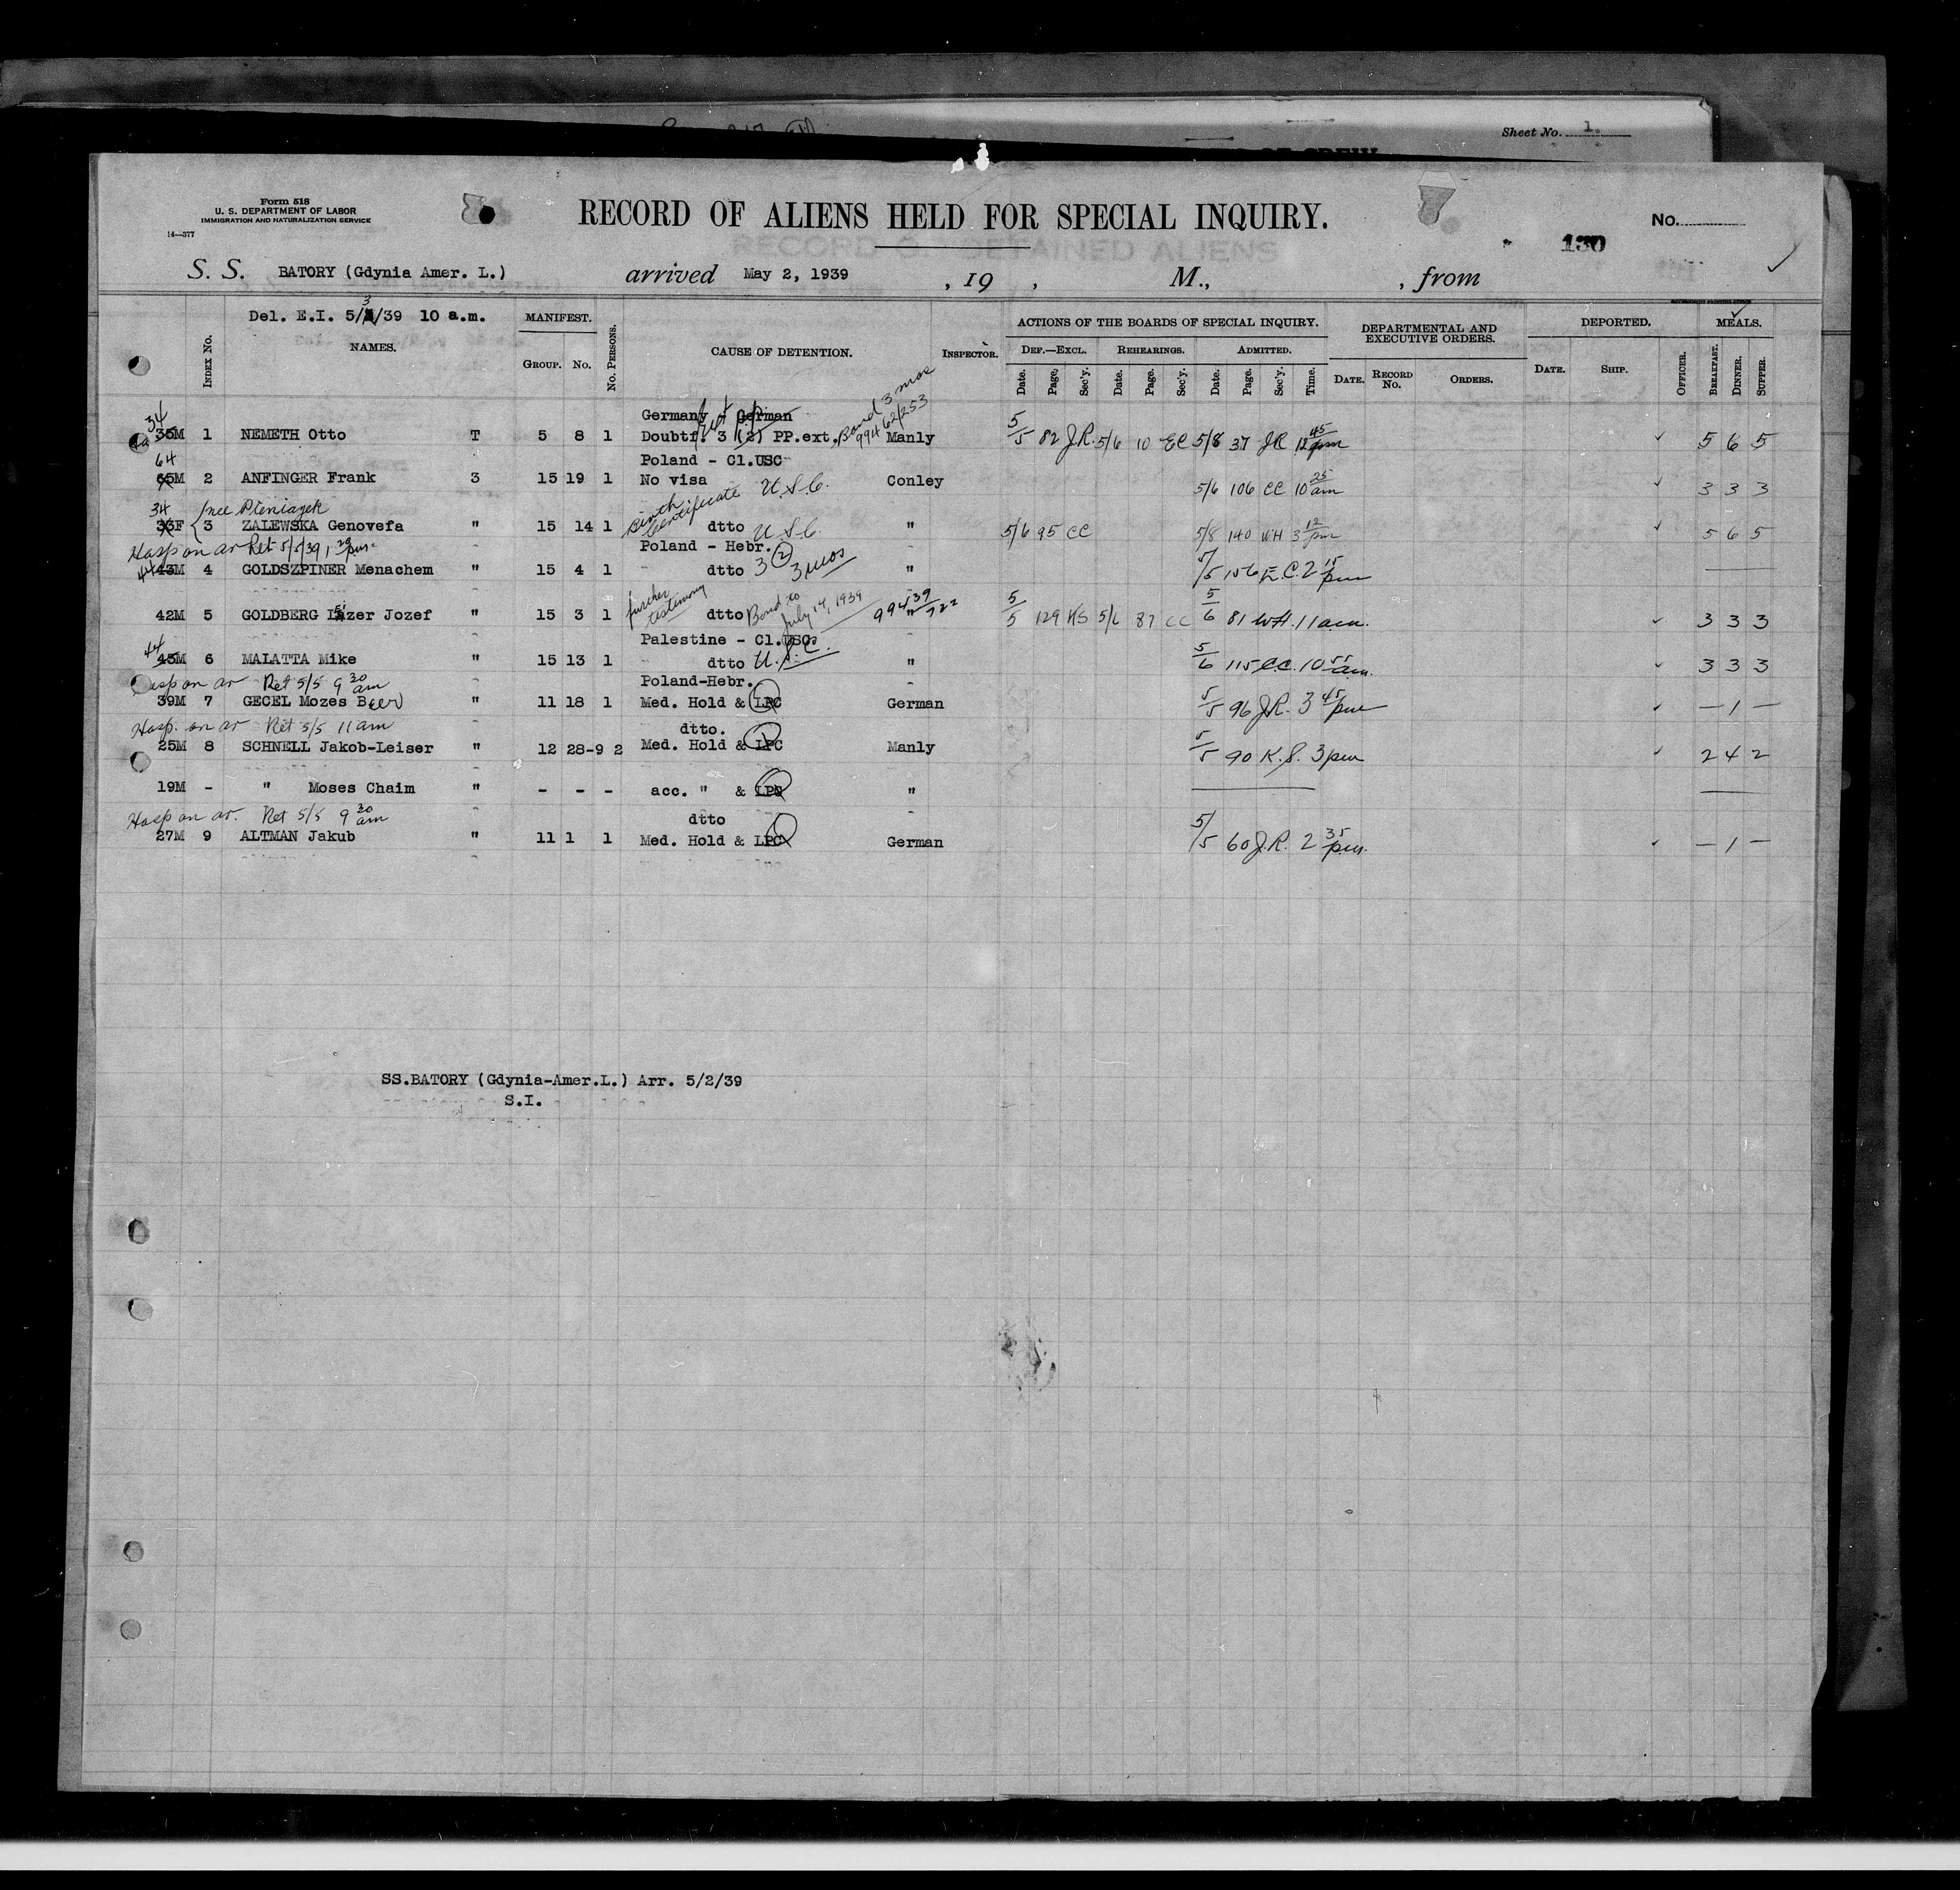 Sheet No. 1.
Form 518
U. S. DEPARTMENT OF LABOR
IMMIGRATION AND NATURALIZATION SERVICE
14—377
RECORD OF ALIENS HELD FOR SPECIAL INQUIRY.
RECORD OF DETAINED ALIENS
No.
130
S. S. BATORY (Gdynia Amer. L.) arrived May 2, 1939 , 19 , M., , from
Del. E.I. 5/3/39 10 a.m.
INDEX No. NAMES. MANIFEST. GROUP. No. No. PERSONS. CAUSE OF DETENTION. INSPECTOR.
ACTIONS OF THE BOARDS OF SPECIAL INQUIRY. DEF.—EXCL. REHEARINGS. ADMITTED.
Date. Page. Sec'y. Date. Page. Sec'y. Date. Page. Sec'y. Time.
DEPARTMENTAL AND EXECUTIVE ORDERS. DATE. RECORD No. ORDERS.
DEPORTED. DATE. SHIP. OFFICER. MEALS. BREAKFAST. DINNER. SUPPER.
Germany - German Bond 3 mos
34
35M 1 NEMETH Otto T 5 8 1 Doubtf. 3 (2) PP.ext. 99462/253 Manly 5/5 82 J.R. 5/6 10 EC 5/8 37 JR 12 45 pm 5 6 5
64 Poland - Cl.USC
65M 2 ANFINGER Frank 3 15 19 1 No visa U.S.C. Conley 5/6 106 CC 10 25 am 3 3 3
34 nee Pieniazek Birth Certificate
33F 3 ZALEWSKA Genovefa " 15 14 1 dtto U.S.C. " 5/6 95 CC 5/8 140 WH 3 12 pm 5 6 5
Hosp on ar Ret 5/5/39 1 pm. Poland - Hebr.
44 43M 4 GOLDSZPINER Menachem " 15 4 1 dtto 3 (2) 3 mos " 5/5 156 E.C. 2 15 pm
further testimony Bond to July 14, 1939 99439/722
42M 5 GOLDBERG Lazer Jozef " 15 3 1 dtto " 5/5 129 KS 5/6 87 CC 5/6 81 WH. 11 am. 3 3 3
44 Palestine - Cl.USC
45M 6 MALATTA Mike " 15 13 1 dtto U.S.C. " 5/6 115 C.C. 10 55 am. 3 3 3
Hosp on ar Ret 5/5 9 30 am Poland-Hebr.
39M 7 GECEL Mozes Beer " 11 18 1 Med. Hold & LPC German 5/5 96 J.R. 3 45 pm — 1 —
Hosp. on ar Ret 5/5 11 am dtto.
25M 8 SCHNELL Jakob-Leiser " 12 28-9 2 Med. Hold & LPC Manly 5/5 90 K.S. 3 pm 2 4 2
19M - " Moses Chaim " - - - acc. " & LPC "
Hosp on ar. Ret 5/5 9 30 am dtto
27M 9 ALTMAN Jakub " 11 1 1 Med. Hold & LPC German 5/5 60 J.R. 2 35 pm. — 1 —
SS.BATORY (Gdynia-Amer.L.) Arr. 5/2/39
S.I.